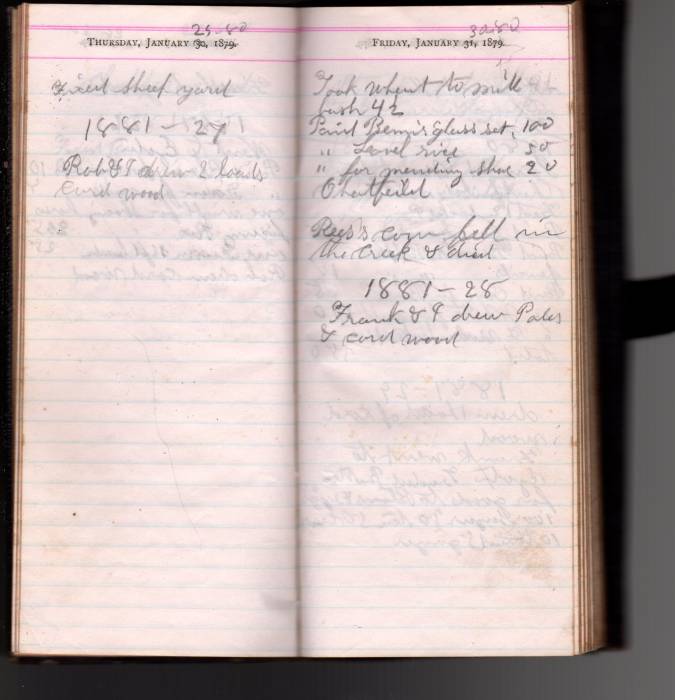 29-80
THURSDAY, JANUARY 30, 1879.
Fixed sheep yard
1881-27
Rob & I drew 2 loads
cord wood
30-80
FRIDAY, JANUARY 31, 1879.
Took wheat to mill
bush 42
Paid glass set, 100
" 50
" for mending shoe 20
Chatfeild
Rees's cow fell in
the Creek & died
1881-28
Frank & I drew Poles
& cord wood